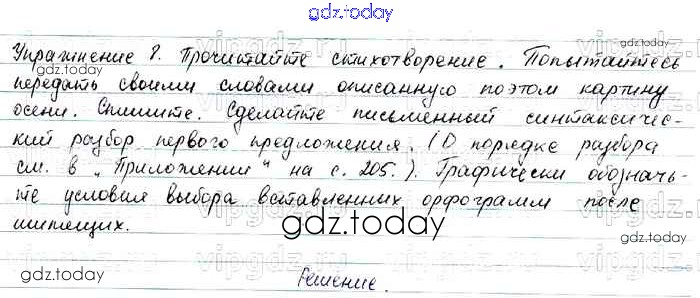 gdz.today
Упражнение 8. Прочитайте стихотворение. Попытайтесь
передать своими словами описанную поэтом картину
осени. Спишите. Сделайте письменный синтаксичес-
кий разбор первого предложения. (О порядке разбора
см. в „Приложении" на с. 205.). Графически обозначь-
те условия выбора вставленных орфограмм после
шипящих.
gdz.today
gdz.today
gdz.today
gdz.today
gdz.today
Решение.